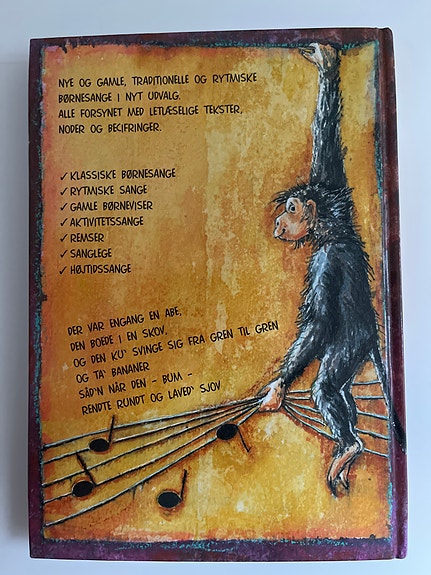 NYE OG GAMLE, TRADITIONELLE OG RYTMISKE
BØRNESANGE I NYT UDVALG.
ALLE FORSYNET MED LETLÆSELIGE TEKSTER,
NODER OG BECIFRINGER.
✓ KLASSISKE BØRNESANGE
✓ RYTMISKE SANGE
✓ GAMLE BØRNEVISER
✓ AKTIVITETSSANGE
✓ REMSER
✓ SANGLEGE
✓ HØJTIDSSANGE
DER VAR ENGANG EN ABE,
DEN BOEDE I EN SKOV,
OG DEN KU' SVINGE SIG FRA GREN TIL GREN
OG TA' BANANER
SÅD'N NÅR DEN – BUM –
RENDTE RUNDT OG LAVED' SJOV